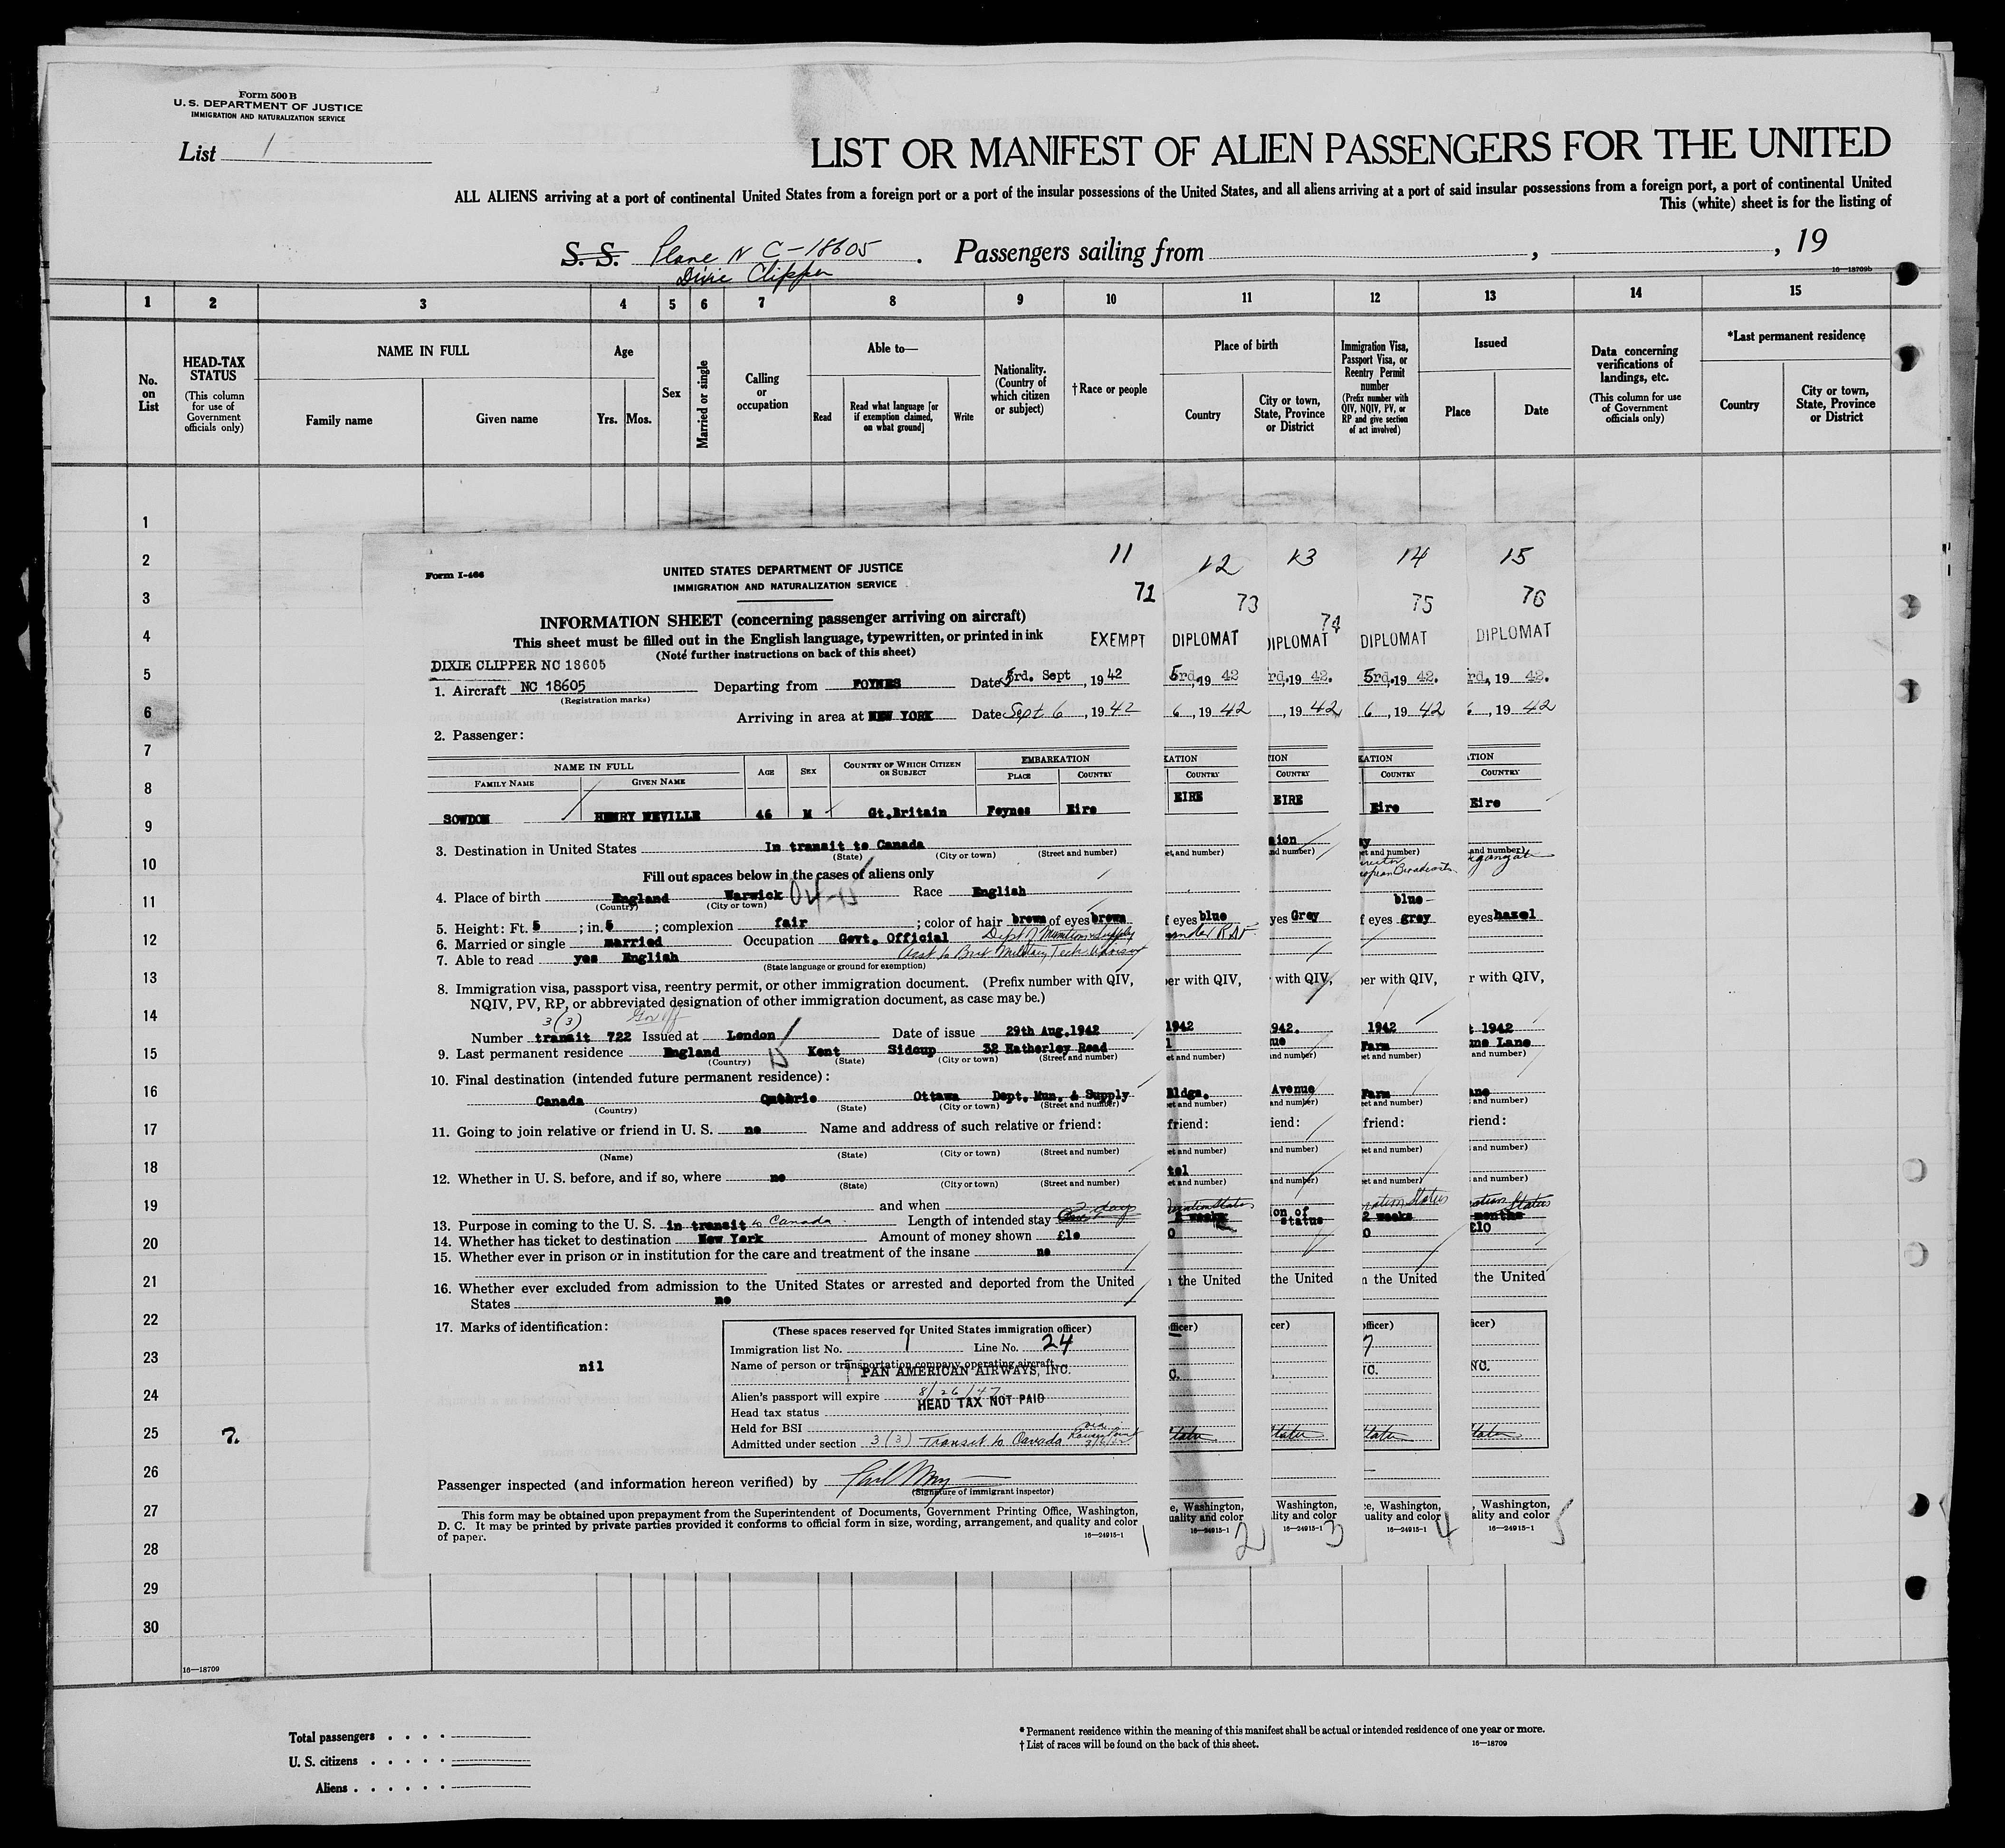 Form 500 B
U. S. DEPARTMENT OF JUSTICE
IMMIGRATION AND NATURALIZATION SERVICE
List 1
LIST OR MANIFEST OF ALIEN PASSENGERS FOR THE UNITED
ALL ALIENS arriving at a port of continental United States from a foreign port or a port of the insular possessions of the United States, and all aliens arriving at a port of said insular possessions from a foreign port, a port of continental United
This (white) sheet is for the listing of
S. S. Plane N C-18605 . Passengers sailing from , , 19
Dixie Clipper
16—18709b
1 2 3 4 5 6 7 8 9 10 11 12 13 14 15
No. on List
HEAD-TAX STATUS
(This column for use of Government officials only)
NAME IN FULL
Family name Given name
Age
Yrs. Mos.
Sex
Married or single
Calling or occupation
Able to—
Read
Read what language [or if exemption claimed, on what ground]
Write
Nationality. (Country of which citizen or subject)
†Race or people
Place of birth
Country
City or town, State, Province or District
Immigration Visa, Passport Visa, or Reentry Permit number
(Prefix number with QIV, NQIV, PV, or RP and give section of act involved)
Issued
Place Date
Data concerning verifications of landings, etc.
(This column for use of Government officials only)
*Last permanent residence
Country
City or town, State, Province or District
1
2
3
4
5
6
7
8
9
10
11
12
13
14
15
16
17
18
19
20
21
22
23
24
25
26
27
28
29
30
16—18709
11 12 13 14 15
71 73 74 75 76
Form I-466
UNITED STATES DEPARTMENT OF JUSTICE
IMMIGRATION AND NATURALIZATION SERVICE
INFORMATION SHEET (concerning passenger arriving on aircraft)
This sheet must be filled out in the English language, typewritten, or printed in ink
(Note further instructions on back of this sheet)
EXEMPT DIPLOMAT DIPLOMAT DIPLOMAT DIPLOMAT
DIXIE CLIPPER NC 18605
1. Aircraft NC 18605 Departing from FOYNES Date 3rd. Sept , 19 42
(Registration marks)
Arriving in area at NEW YORK Date Sept 6 , 19 42
2. Passenger:
NAME IN FULL
FAMILY NAME GIVEN NAME
AGE SEX
COUNTRY OF WHICH CITIZEN OR SUBJECT
EMBARKATION
PLACE COUNTRY
SOWDON HENRY NEVILLE 46 M Gt.Britain Foynes Eire
EIRE EIRE Eire Eire
3. Destination in United States In transit to Canada
(State) (City or town) (Street and number)
Fill out spaces below in the cases of aliens only
4. Place of birth England Warwick Race English
(Country) (City or town)
5. Height: Ft. 5 ; in. 5 ; complexion fair ; color of hair brown of eyes brown
f eyes blue yes Grey f eyes grey eyes hazel
6. Married or single married Occupation Govt. Official Dept of Munitions & Supply
7. Able to read yes English Asst to Brit Military Tech. Advisor
(State language or ground for exemption)
8. Immigration visa, passport visa, reentry permit, or other immigration document. (Prefix number with QIV,
NQIV, PV, RP, or abbreviated designation of other immigration document, as case may be.)
3(3) Gov off
Number transit 722 Issued at London Date of issue 29th Aug.1942
9. Last permanent residence England Kent Sidcup 32 Hatherley Road
(Country) (State) (City or town) (Street and number)
10. Final destination (intended future permanent residence):
Canada Ontario Ottawa Dept. Mun. & Supply
(Country) (State) (City or town) (Street and number)
11. Going to join relative or friend in U. S. no Name and address of such relative or friend:
(Name) (State) (City or town) (Street and number)
12. Whether in U. S. before, and if so, where no
(State) (City or town) (Street and number)
and when
13. Purpose in coming to the U. S. in transit to Canada Length of intended stay 2 days
14. Whether has ticket to destination New York Amount of money shown £10
15. Whether ever in prison or in institution for the care and treatment of the insane no
16. Whether ever excluded from admission to the United States or arrested and deported from the United
States no
17. Marks of identification:
nil
(These spaces reserved for United States immigration officer)
Immigration list No. 1 Line No. 24
Name of person or transportation company operating aircraft
PAN AMERICAN AIRWAYS, INC.
Alien's passport will expire 8/26/47
Head tax status HEAD TAX NOT PAID
Held for BSI
Admitted under section 3(3) Transit to Canada via Rouses Point
Passenger inspected (and information hereon verified) by
(Signature of immigrant inspector)
This form may be obtained upon prepayment from the Superintendent of Documents, Government Printing Office, Washington,
D. C. It may be printed by private parties provided it conforms to official form in size, wording, arrangement, and quality and color
of paper.
16—24915-1
1 2 3 4 5
Total passengers
U. S. citizens
Aliens
*Permanent residence within the meaning of this manifest shall be actual or intended residence of one year or more.
†List of races will be found on the back of this sheet.
16—18709